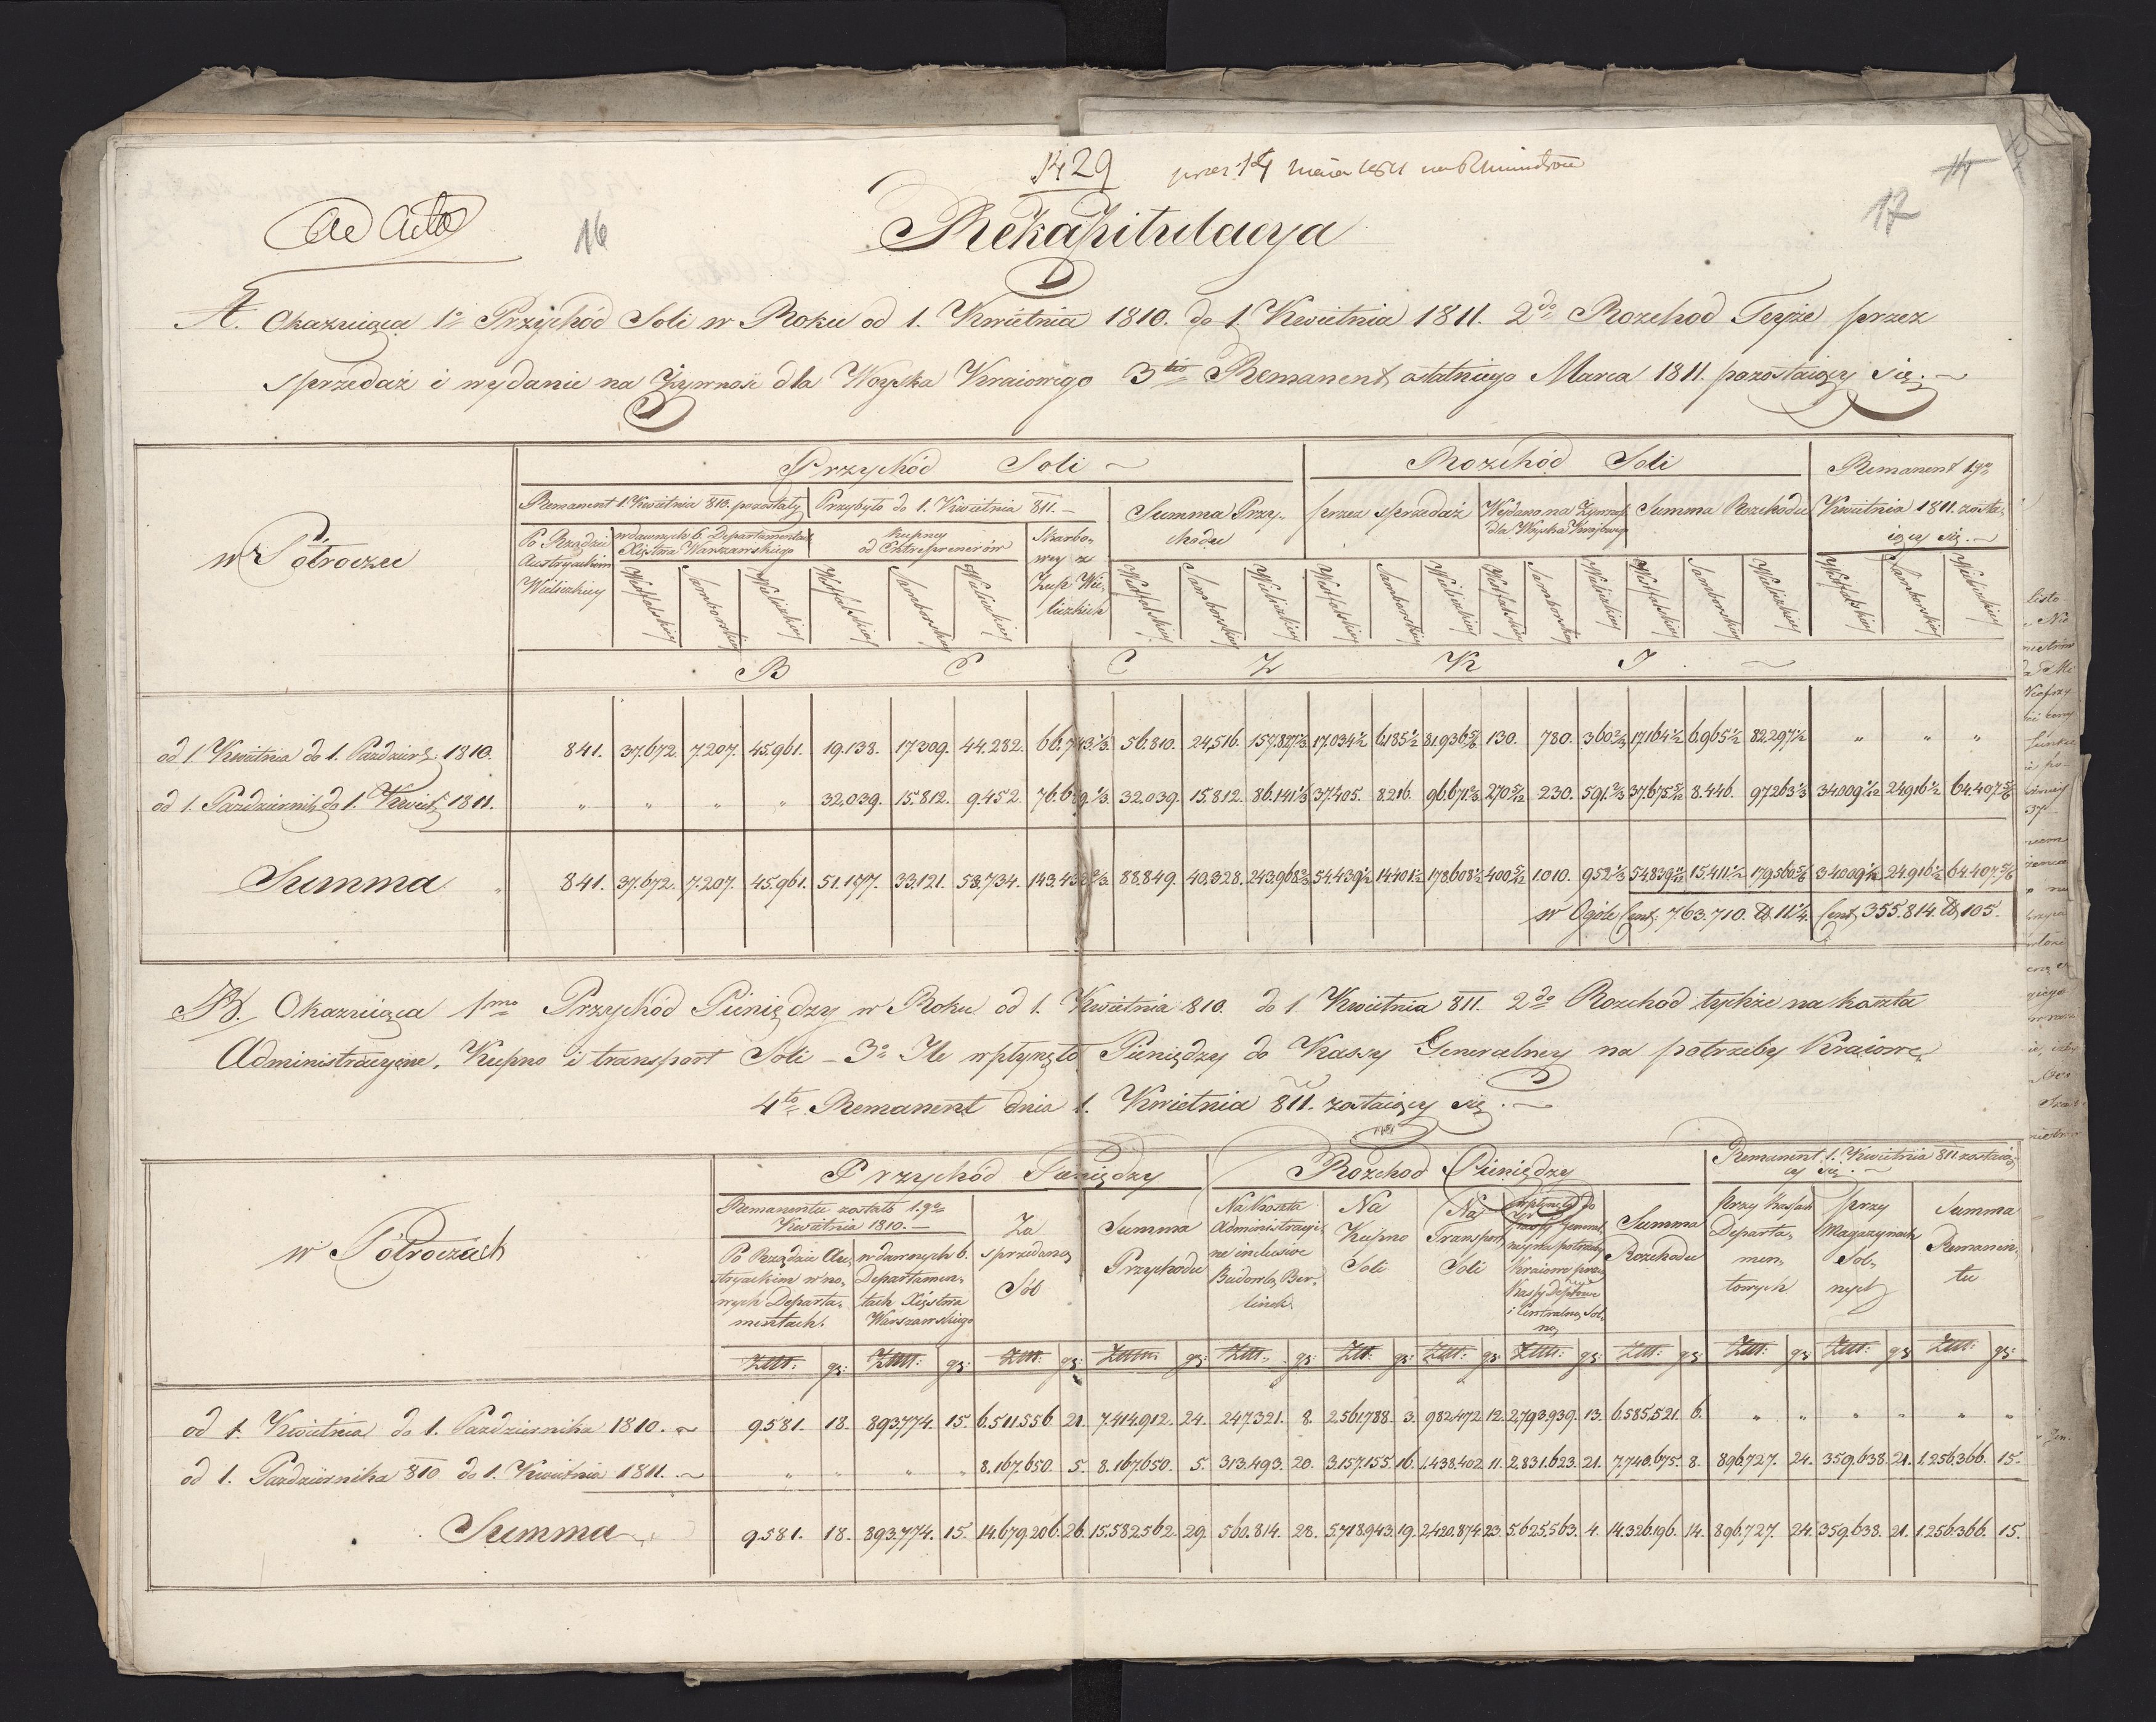 1429
Ad Acta
16
17
14
Rekapitulacya
A. Okazuiąca 1o Przychód Soli w Roku od 1. Kwietnia 1810. do 1. Kwietnia 1811. 2do Rozchod Teyże przez
sprzedaż i wydanie na Żywność dla Woyska Kraiowego 3tio Remanent ostatniego Marca 1811. pozostaiący się. ~
w Półroczu
Przychód Soli ~
Rozchód Soli
Remanent 1go Kwietnia 1811. zostaiący się. ~
Remanent 1. Kwietnia 810. pozostały
Przybyło do 1. Kwietnia 811. —
Summa Przychodu
przez sprzedaż
Wydano na Żywność dla Woyska Kraiowego
Summa Rozchodu
Po Rządzie Austryackim Wieliczkiey
w dawnych 6. Departamentach Xięstwa Warszawskiego
Kupney od Entreprenerów
Skarbowey z Żup Wieliczkich
Westfalskiey Samborskiey Wieliczkiey Westfalskiey Samborskiey Wieliczkiey Westfalskiey Samborskiey Wieliczkiey Westfalskiey Samborskiey Wieliczkiey Westfalskiey Samborskiey Wieliczkiey Westfalskiey Samborskiey Wieliczkiey Westfalskiey Samborskiey Wieliczkiey
B E C Z K I . ~
od 1. Kwietnia do 1. Paździer: 1810. 841. 37.672. 7.207. 45.961. 19.138. 17.309. 44.282. 66.743⅓ 56.810. 24,516. 157.827⅓ 17.034½ 6.185½ 81.936⅚ 130. 780. 360⅔ 17.164½ 6.965½ 82.297½ „ „ „
od 1. Październik: do 1. Kwiet: 1811. „ „ „ „ 32.039. 15.812. 9.452. 76.689.⅓ 32.039. 15.812. 86.141⅓ 37.405. 8.216. 96.671⅔ 270 5/12 230. 591.⅔ 37.675 5/12 8.446. 97.263⅓ 34.009 1/12 24.916½ 64.407.⅚
Summa „ 841. 37.672. 7.207. 45.961. 51.177. 33.121. 53.734. 143.432⅔ 88.849. 40.328. 243.968⅔ 54.439½ 14.401½ 178.608½ 400 5/12 1.010. 952⅓ 54.839 11/12 15.411.½ 179.560⅚ 34.009 1/12 24.916½ 64.407.⅚
w Ogóle Cent: 763.710. ℔ 11¼. Cent: 355.814. ℔ 105.
B. Okazuiąca 1mo Przychód Pieniędzy w Roku od 1. Kwietnia 810. do 1 Kwietnia 811. 2do Rozchod tychże na koszta
Administracyine, Kupno i transport Soli – 3o Ile wpłynęło Pieniędzy do Kassy Generalney na potrzeby Kraiowe,
4to Remanent dnia 1. Kwietnia 811. zostaiący się. ~
w Półroczach
Przychód Pieniędzy
Rozchod Pieniędzy
Remanent 1. Kwietnia 811. zostaiący się. ~
Remanentu zostało 1.go Kwietnia 1810. —
Po Rządzie Austryackim w nowych Departamentach.
w dawnych 6. Departamentach Xięstwa Warszawskiego
Za sprzedaną Sól
Summa Przychodu
Na Koszta Administracyine inclusive
Na Kupno Soli
Na Transport Soli
Summa Rozchodu
przy Kassach Departamentowych
przy Magazynach Solnych
Summa Remanentu
Złł: gr: Złł: gr: Złł: gr: Złł: gr: Złł: gr: Złł: gr: Złł: gr: Złł: gr: Złł: gr: Złł: gr: Złł: gr: Złł: gr:
od 1. Kwietnia do 1. Października 1810. ~ 9.581. 18. 893.774. 15. 6.511.556 21. 7.414.912. 24. 247.321. 8. 2.561.788. 3. 982.472 12. 2.793.939. 13. 6.585.521. 6. „ „ „ „ „ „
od 1. Października 810 do 1. Kwietnia 1811. ~ „ „ „ „ 8.167.650. 5. 8.167.650. 5. 313.493. 20. 3.157.155. 16. 1.438.402 11. 2.831.623. 21. 7.740.675. 8. 896.727. 24. 359.638. 21. 1.256.366. 15.
Summa 9.581. 18. 893.774. 15. 14.679.206. 26. 15.582.562. 29. 560.814. 28. 5.718.943. 19. 2.420.874 23. 5.625.563. 4. 14.326.196. 14. 896.727. 24. 359.638. 21. 1.256.366. 15.